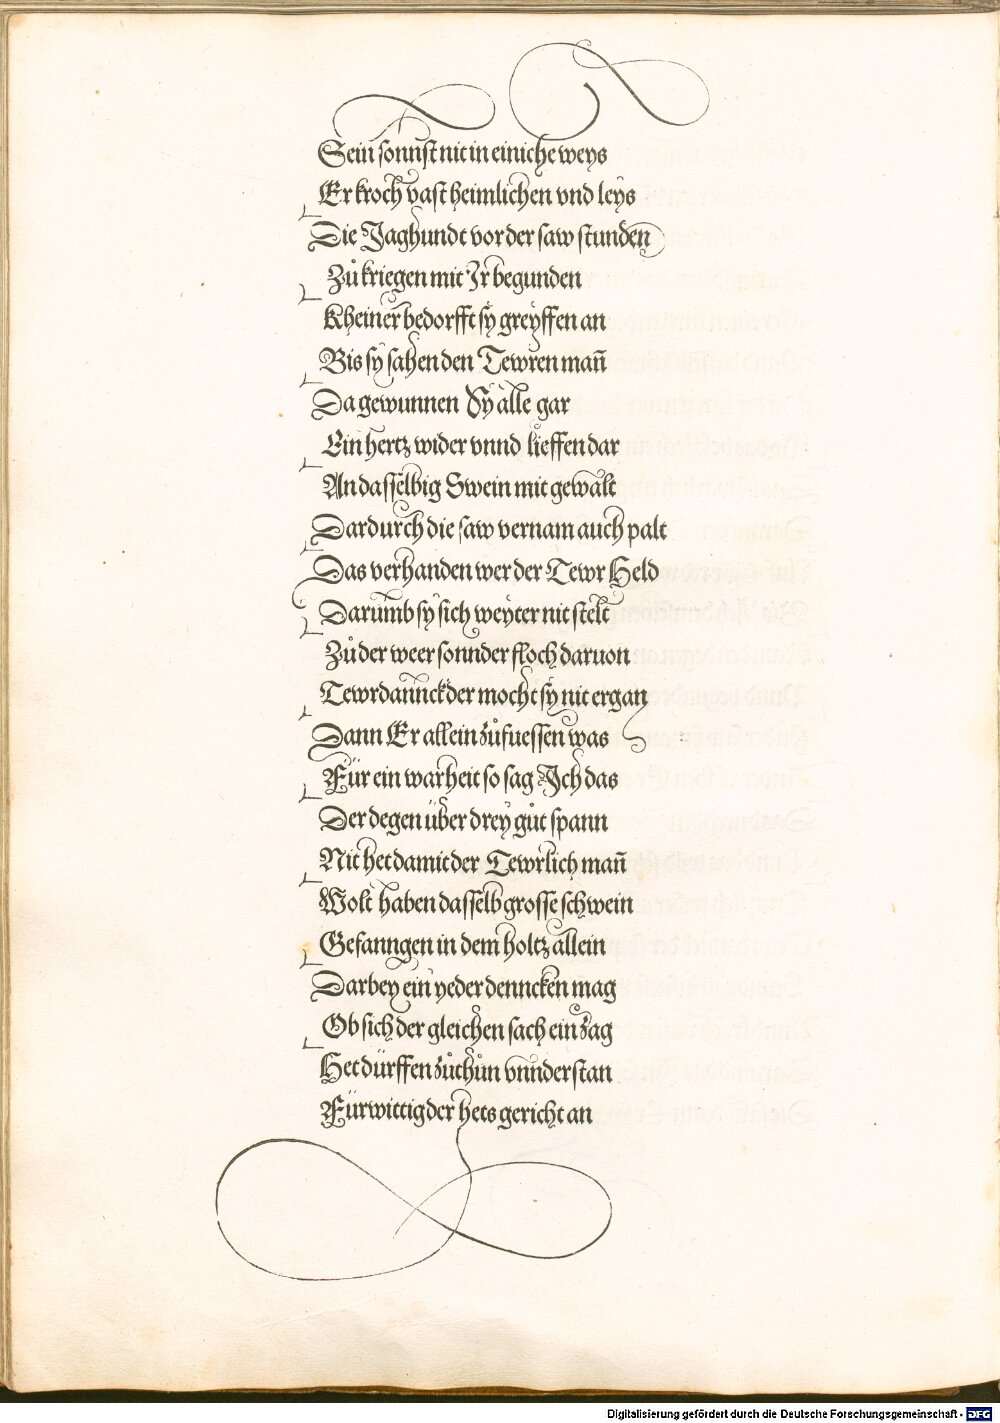 Sein sonnst nit in einiche weys
Er kroch vast heimlichen vnd leÿs
Die Jaghundt vor der saw stunden
Zů kriegen mit Ir begunden
Kheiner bedorfft sÿ greÿffen an
Bis sÿ sahen den Tewren mañ
Da gewunnen Sÿ alle gar
Ein hertz wider vnnd lieffen dar
An dasselbig Swein mit gewalt
Dardurch die saw vernam auch palt
Das verhanden wer der Tewr Held
Darumb sÿ sich weÿter nit stelt
Zů der weer sonnder floch daruon
Tewrdannck der mocht sÿ nit ergan
Dann Er allein zůfuessen was
Für ein warheit so sag Ich das
Der degen über dreÿ gůt spann
Nit het damit der Tewrlich mañ
Wolt haben dasselb grosse schwein
Gefanngen in dem holtz allein
Darbeÿ ein yeder denncken mag
Ob sich der gleichen sach ein zag
Het dürffen zůthůn vnnderstan
Fürwittig der hets gericht an
Digitalisierung gefördert durch die Deutsche Forschungsgemeinschaft - DFG